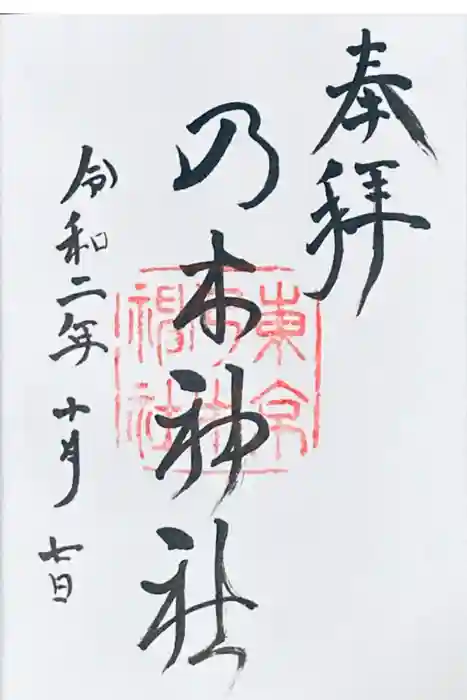 奉拝
乃木神社
東京
乃木
神社
令和二年十月七日